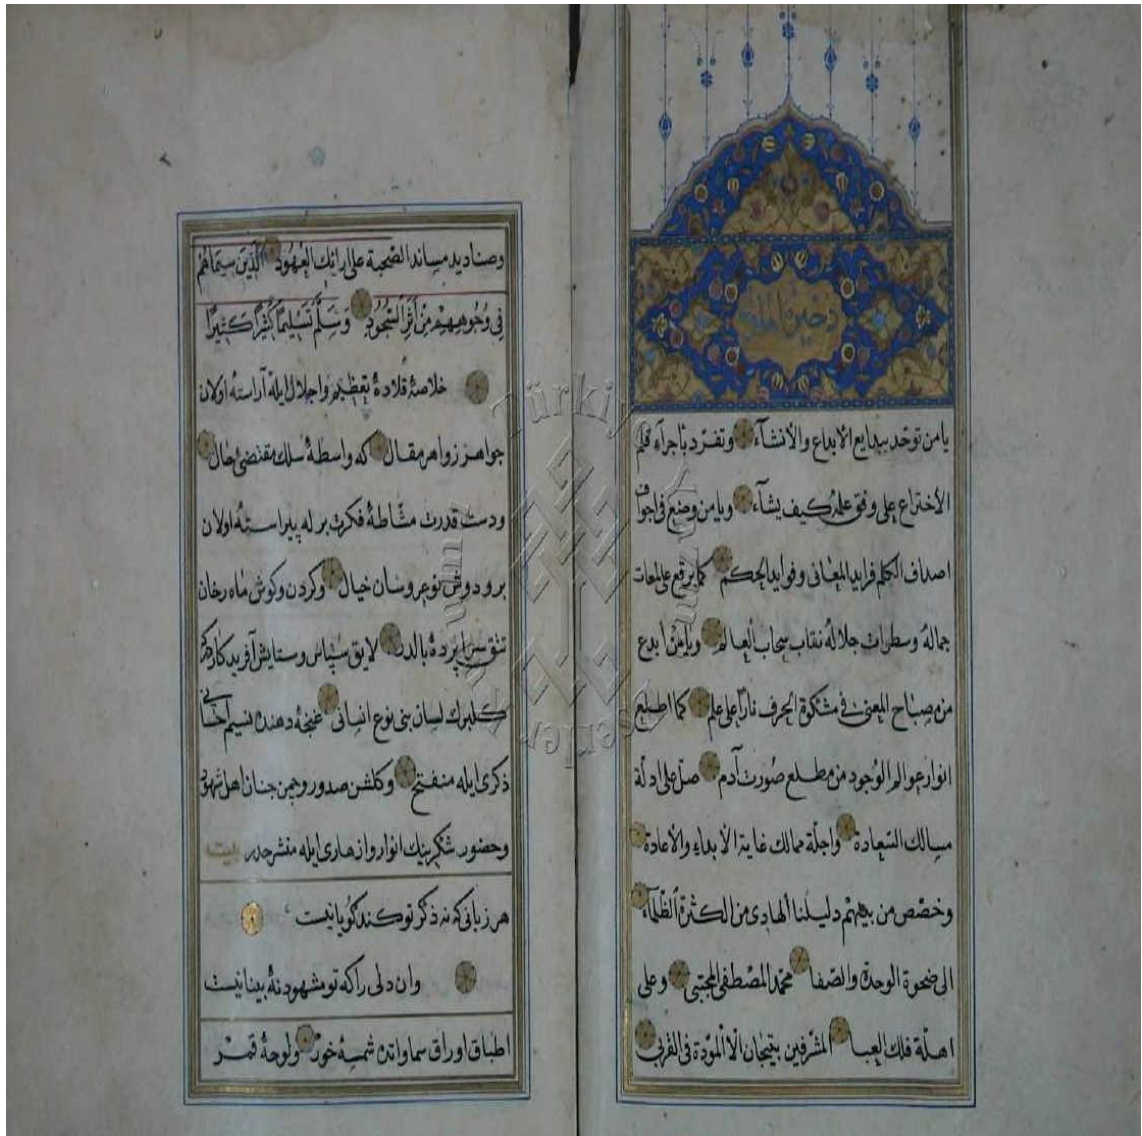 ذخيرة الملوك
يا من توحد ببدايع الابداع والانشآء وتفرد باجرآء قلم
الاختراع على وفق علمه كيف يشآء ويا من وضع فى اجواف
اصداف الكلم فرايد المعانى وفوايد الحكم كما يرقع على لمعات
جماله وسطرات جلاله نقاب سحاب العالم ويا من ابدع
من مصباح المعنى فى مشكوة الحرف نارا على علم كما اطلع
انوار عوالم الوجود من مطلع صورت آدم صل على ادلة
مسالك السعادة واجلة ممالك غاية الابداء والاعادة
وخصص من بينهم دليلنا الهادى من الكثرة الظلمآء
الى ضحوة الوحدة والصفا محمد المصطفى المجتبى وعلى
اهلة فلك العبا المشرفين بتيجان الا المودة فى القربى
وصناديد مساند الصحبة على ارائك العهود الذين سيماهم
فى وجوههم من اثر السجود وسلم تسليما كثيرا كثيرا
خلاصۀ قلادۀ تعظيم واجلال ايله آراسته اولان
جواهر زواهر مقال كه واسطۀ سلك مقتضئ حال
ودست قدرت مشاطۀ فكرت بر له پيراسته اولان
بر ودوش نوعروسان خيال وكردن وكوش ماه رخان
تتق سراپردۀ بالدر لايق سپاس وستايش آفريدكاردركه
كلبرك لسان بنى نوع انسانى غنچۀ دهنده نسيم احسانى
ذكرى ايله منفتح وكلشن صدور وچمن جنان اهل شهود
وحضور شكرينك انوار وازهارى ايله منشرحدر بيت
هر زبانى كه نه ذكر تو كند كويا نيست
وان دلى راكه تو مشهود نۀ بينا نيست
اطباق اوراق سماواتده شمسۀ خور ولوحۀ قمر